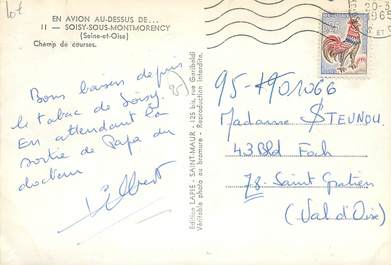 lot
EN AVION AU-DESSUS DE...
11 — SOISY-SOUS-MONTMORENCY
(Seine-et-Oise)
Champ de courses.
Bons baisers depuis
le tabac de Soisy.
En attendant la
sortie de Papa du
docteur
Edition LAPIE - SAINT-MAUR - 125 bis, rue Garibaldi
Véritable photo au bromure - Reproduction interdite.
20-3
95-1901066
Madame STEUNOU.
43 Bld Foch
78. Saint Gratien
(Val d'Oise)